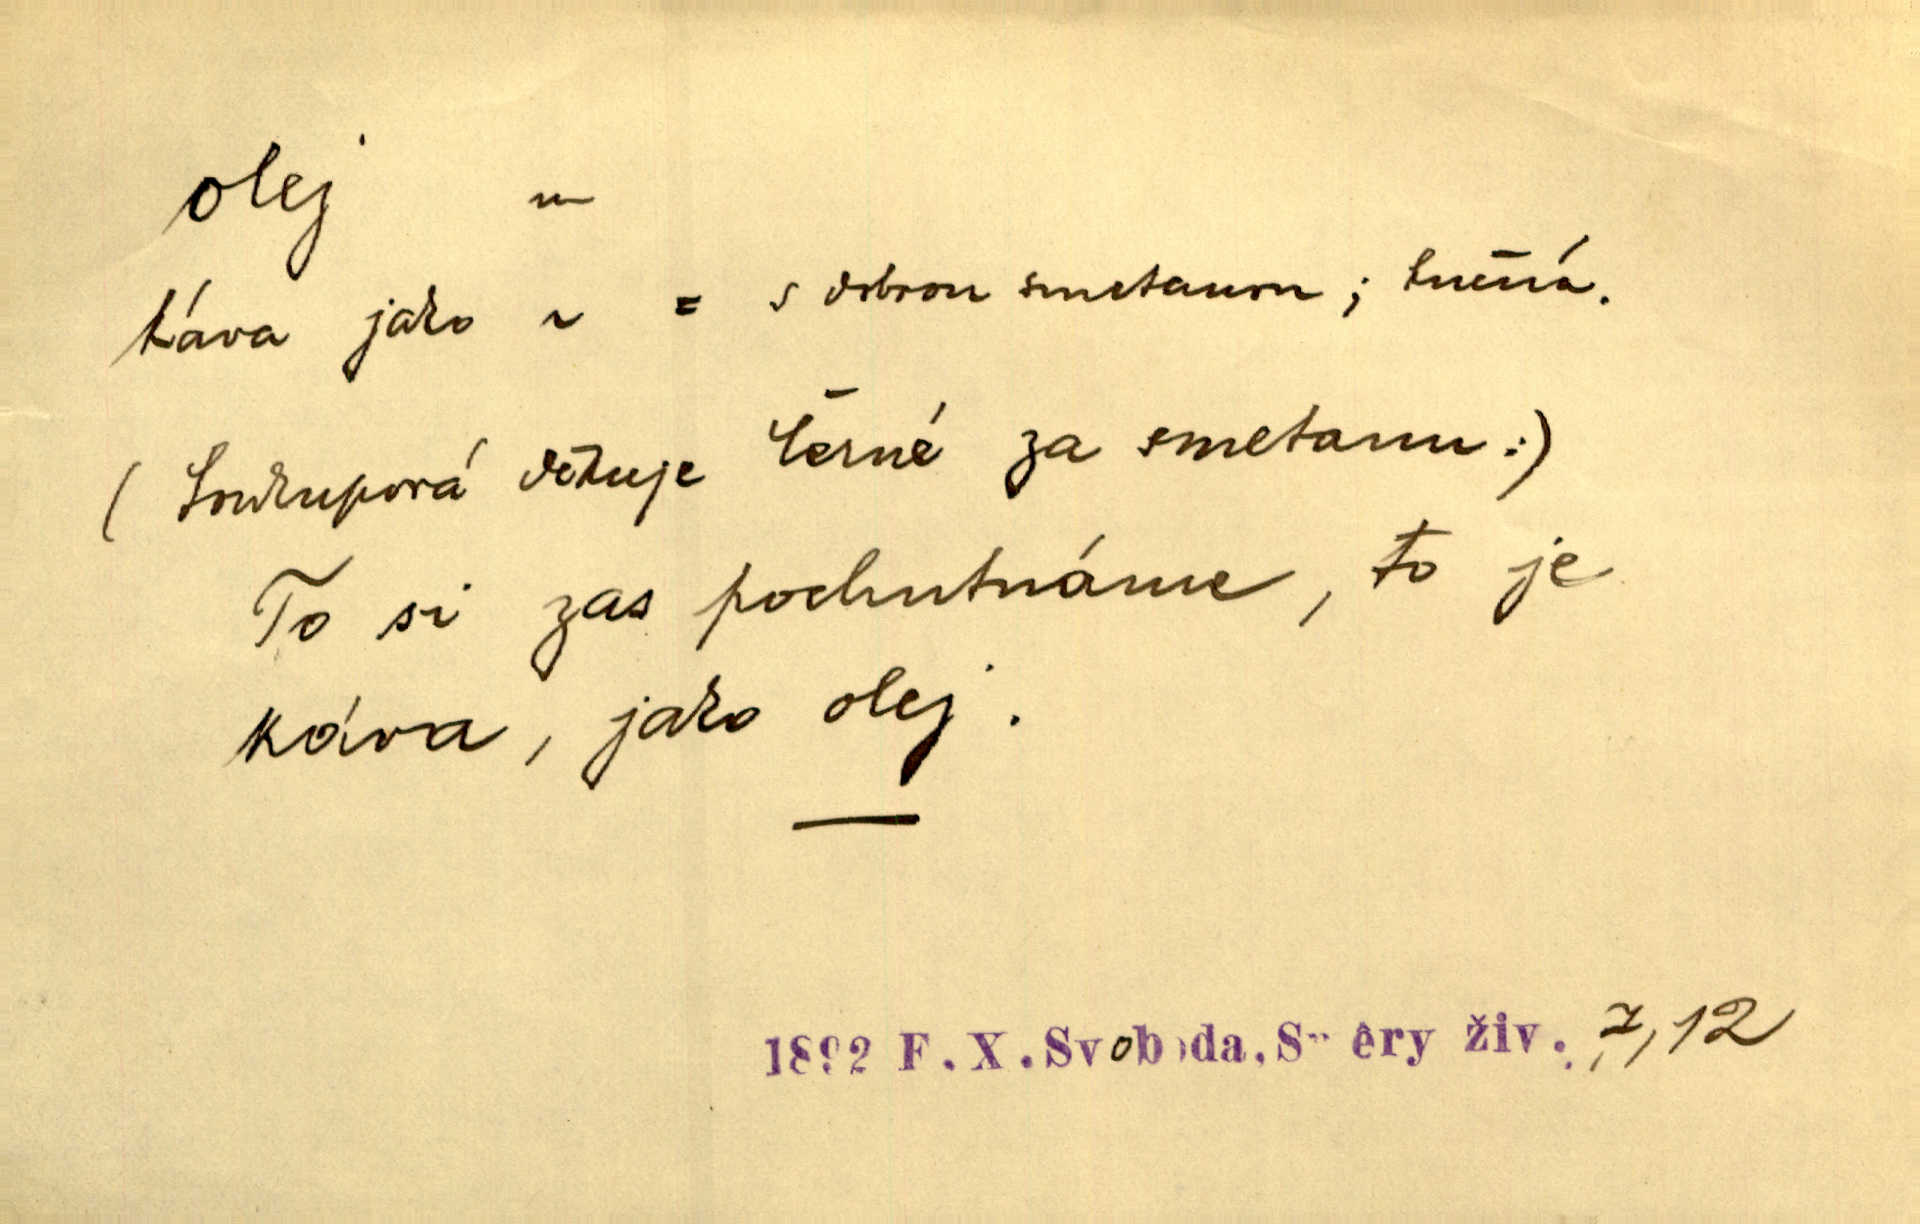 olej ~
káva jako ~ = s dobrou smetanou; tučná.
(Soukupová děkuje Černé za smetanu:)
To si zas pochutnáme, to je
káva, jako olej.
1892 F. X. Svoboda, Směry živ. 7, 12